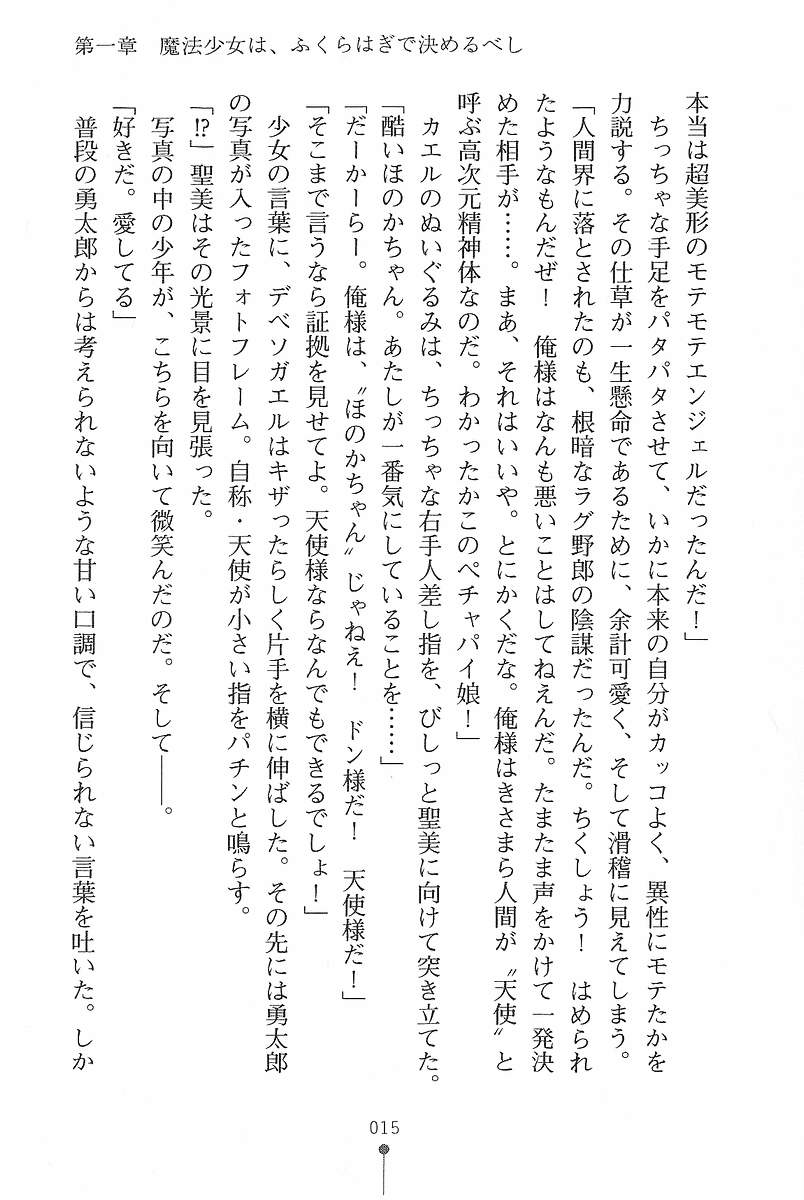 第一章　魔法少女は、ふくらはぎで決めるべし
本当は超美形のモテモテエンジェルだったんだ！」
　ちっちゃな手足をパタパタさせて、いかに本来の自分がカッコよく、異性にモテたかを
力説する。その仕草が一生懸命であるために、余計可愛く、そして滑稽に見えてしまう。
「人間界に落とされたのも、根暗なラグ野郎の陰謀だったんだ。ちくしょう！　はめられ
たようなもんだぜ！　俺様はなんも悪いことはしてねえんだ。たまたま声をかけて一発決
めた相手が……。まあ、それはいいや。とにかくだな。俺様はきさまら人間が〝天使〟と
呼ぶ高次元精神体なのだ。わかったかこのペチャパイ娘！」
　カエルのぬいぐるみは、ちっちゃな右手人差し指を、びしっと聖美に向けて突き立てた。
「酷いほのかちゃん。あたしが一番気にしていることを……」
「だーかーらー。俺様は、〝ほのかちゃん〟じゃねえ！　ドン様だ！　天使様だ！」
「そこまで言うなら証拠を見せてよ。天使様ならなんでもできるでしょ！」
　少女の言葉に、デベソガエルはキザったらしく片手を横に伸ばした。その先には勇太郎
の写真が入ったフォトフレーム。自称・天使が小さい指をパチンと鳴らす。
「!?」聖美はその光景に目を見張った。
　写真の中の少年が、こちらを向いて微笑んだのだ。そして――。
「好きだ。愛してる」
　普段の勇太郎からは考えられないような甘い口調で、信じられない言葉を吐いた。しか
015